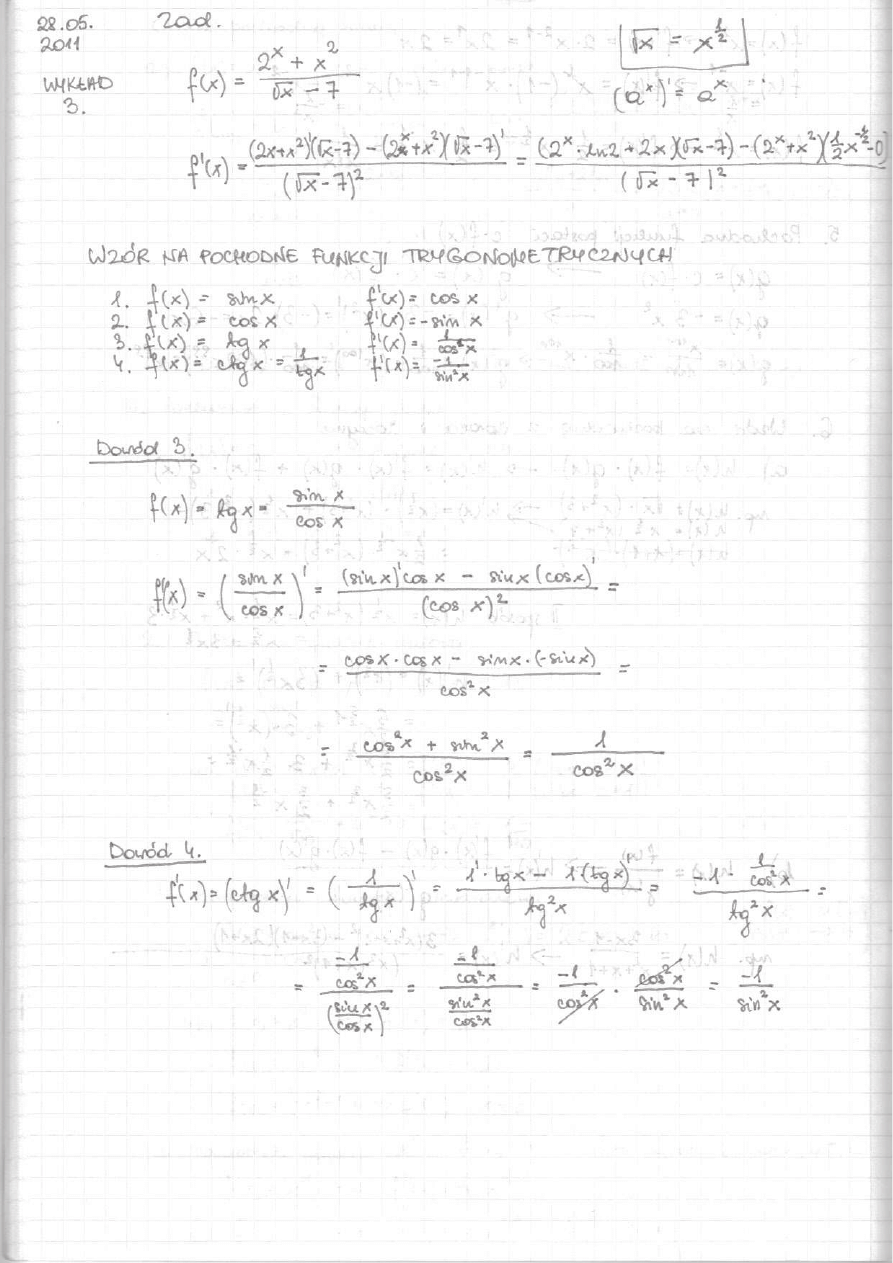 28.05.
2011
WYKŁAD
3.
Zad.
f(x) = (2^x + x^2)/(√x − 7)
√x = x^(1/2)
(a^x)' = a^x
f'(x) = ((2x+x^2)'(√x−7) − (2^x+x^2)(√x−7)')/(√x−7)^2 = ((2^x · ln2 + 2x)(√x−7) − (2^x+x^2)(1/2 x^(-1/2) −0))/(√x − 7)^2
WZÓR NA POCHODNE FUNKCJI TRYGONOMETRYCZNYCH
1. f(x) = sin x f'(x) = cos x
2. f(x) = cos x f'(x) = −sin x
3. f(x) = tg x f'(x) = 1/cos^2x
4. f(x) = ctg x = 1/tgx f'(x) = −1/sin^2x
Dowód 3.
f(x) = tg x = sin x/cos x
f'(x) = (sin x/cos x)' = ((sin x)'cos x − sin x (cos x)')/(cos x)^2 =
= (cos x · cos x − sin x · (−sin x))/cos^2x =
= (cos^2x + sin^2x)/cos^2x = 1/cos^2x
Dowód 4.
f'(x) = (ctg x)' = (1/tg x)' = (1' · tg x − 1(tg x)')/tg^2x = (−1 · 1/cos^2x)/tg^2x =
= (−1/cos^2x)/(sin x/cos x)^2 = (−1/cos^2x)/(sin^2x/cos^2x) = −1/cos^2x · cos^2x/sin^2x = −1/sin^2x